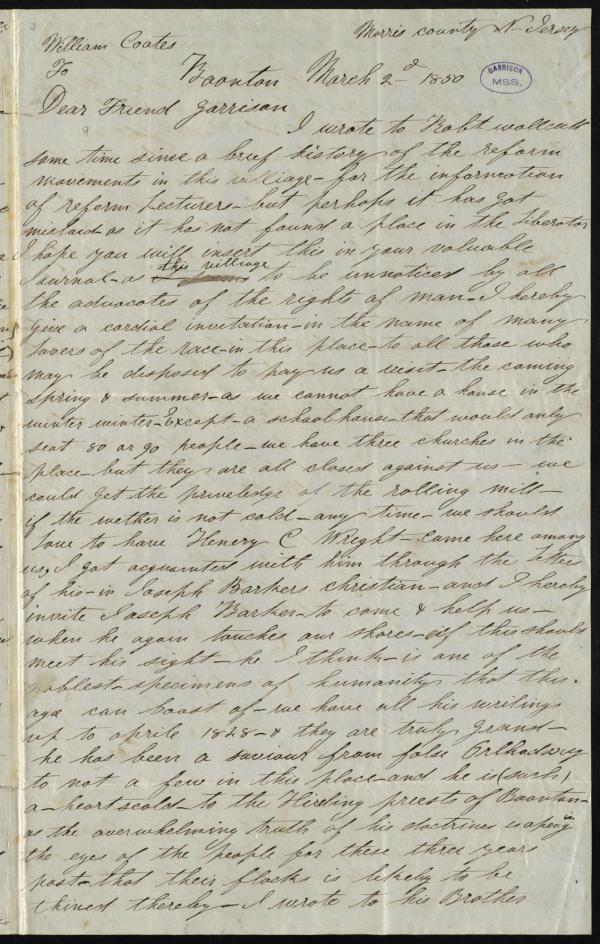 William Coates
Morris county N-Jersey
To
Boonton March 2-d 1850
GARRISON
MSS.
Dear Friend Garrison
I wrote to Robt wallcutt
some time since a brief history of the reform
movements in this village - for the information
of reform Lecturers - but perhaps it has got
mislaid - as it has not found a place in the Liberator
I hope you will insert this in your valuable
this village
Journal - as to be unnoticed by all
the advocates of the rights of man - I hereby
give a cordial invitation - in the name of many
Lovers of the race - in this place - to all those who
may be disposed to pay us a visit - the coming
spring & summer - as we cannot have a house in the
winter winter - Except - a school house - that would only
seat 80 or 90 people - we have three churches in the
place - but they are all closed against us - we
could get the priveledge of the rolling mill -
if the wether is not cold - any time - we should
Love to have Henery C Wright - Came here among
us, I got acquainted with him through the Letters
of his - in Joseph Barkers christian - and I hereby
invite Joseph Barker - to come & help us -
when he again touches our shores - if this should
meet his sight - he I think - is one of the
noblest - specimens of humanity that this
age can boast of - we have all his writings
up to aprile 1828 - & they are truly grand -
he has been a saviour from false Orthadoxy
to not a few in this place - and he is (such)
a - heart scald - to the Hireling priests of Boonton -
as the overwhelming truth of his doctrines is opening
the eyes of the people for these three years
past - that their flocks is likely to be
thined thereby - I wrote to his Brother